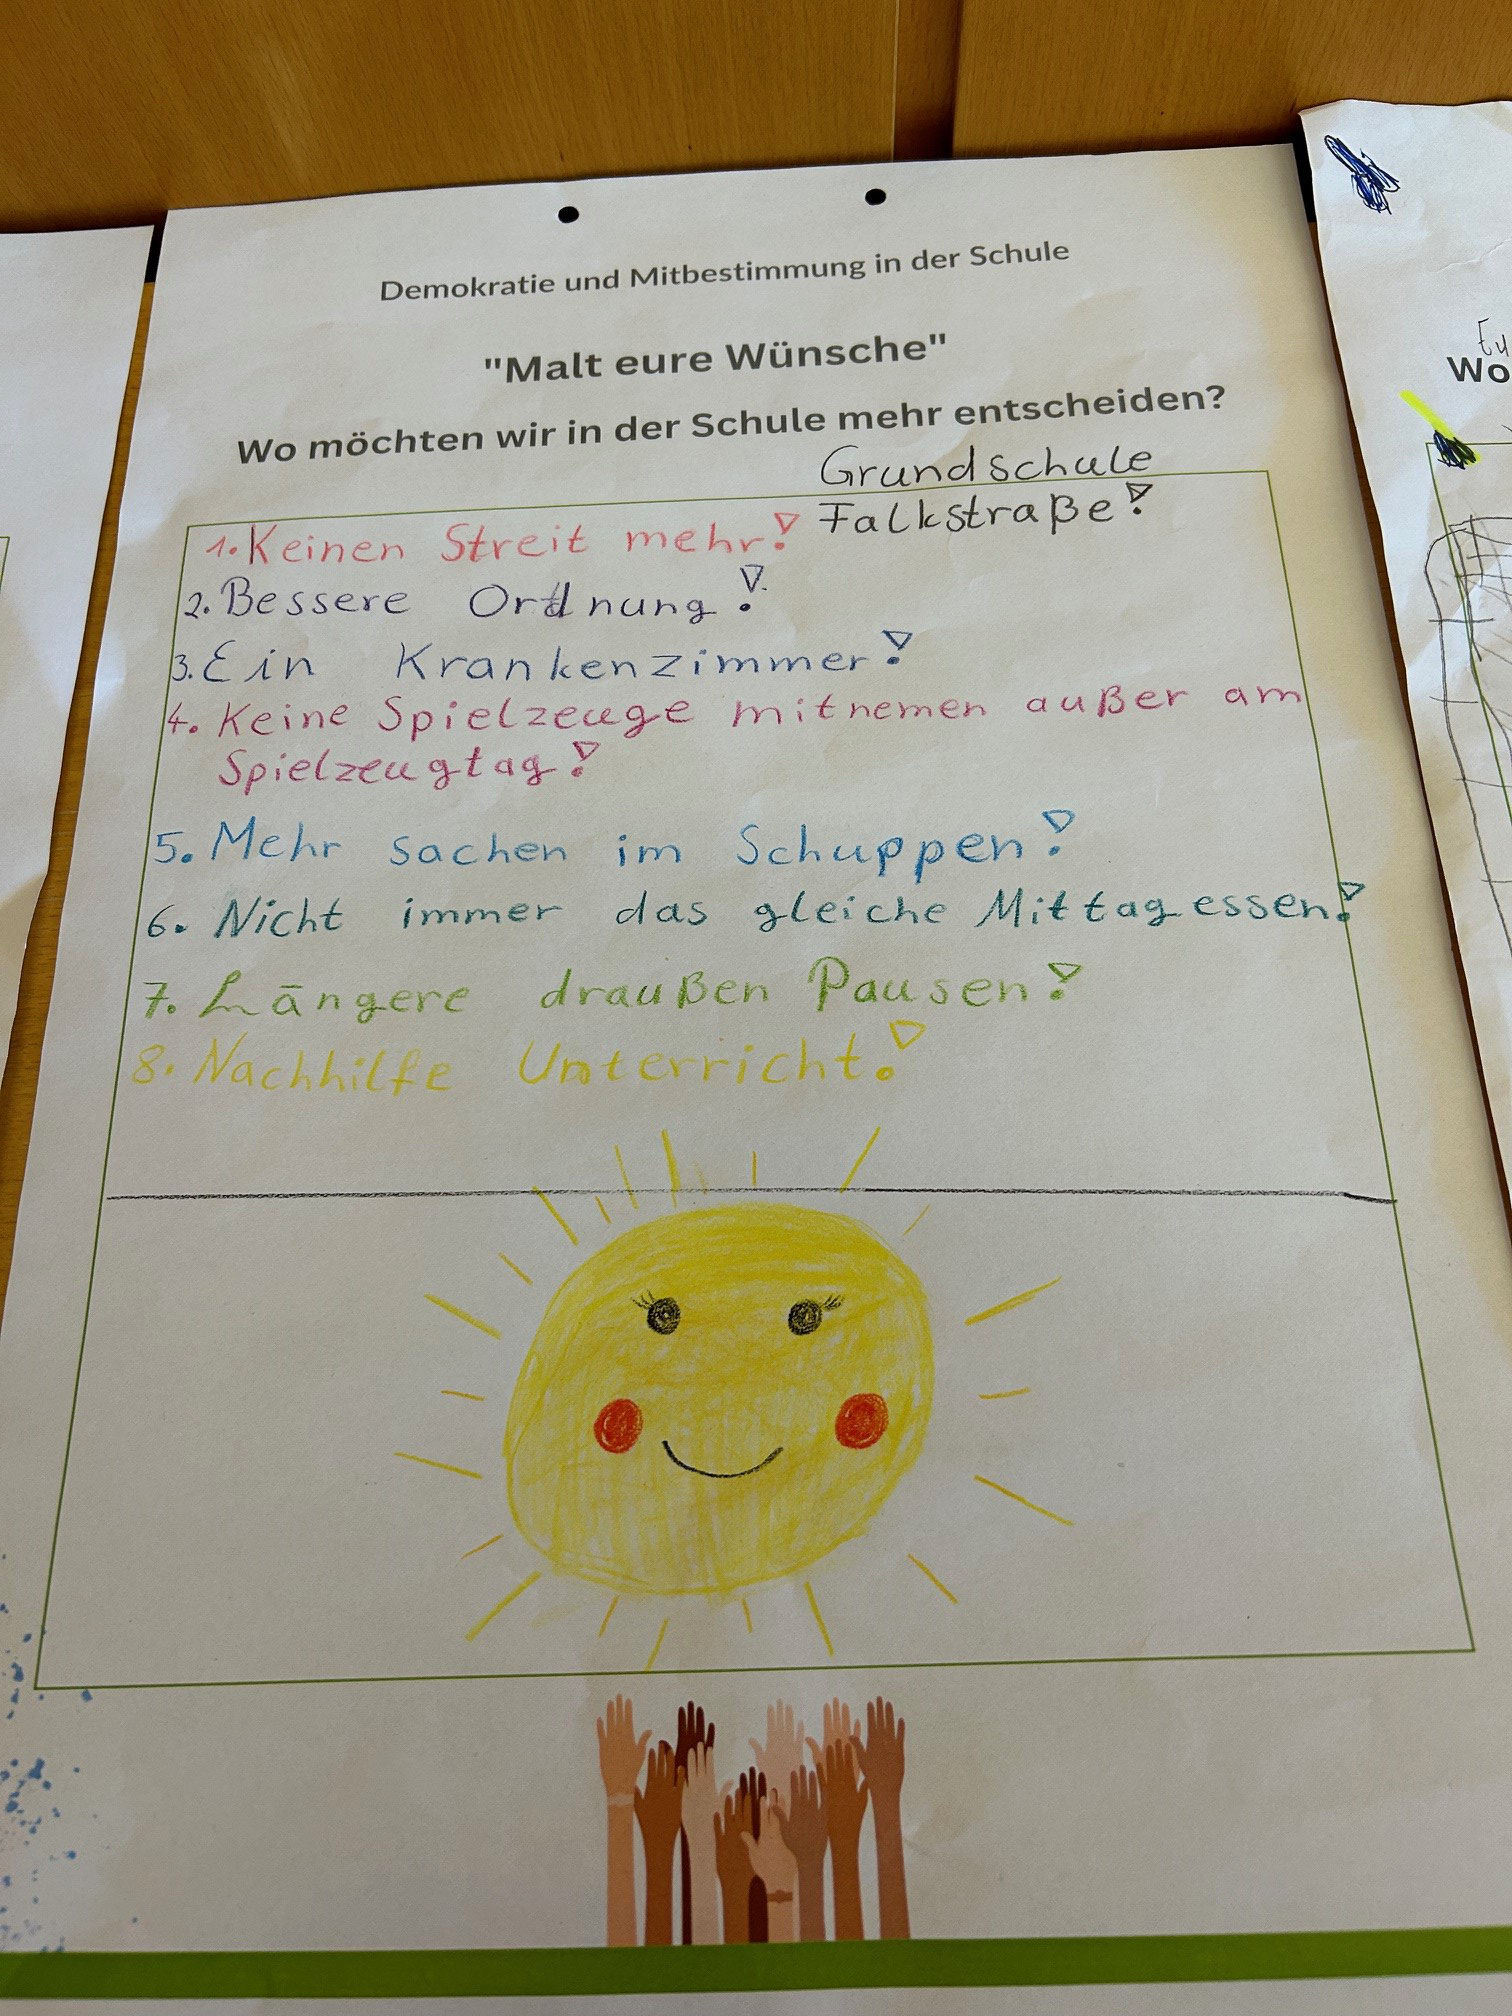 Demokratie und Mitbestimmung in der Schule
"Malt eure Wünsche"
Wo möchten wir in der Schule mehr entscheiden?
Grundschule
Falkstraße!
1. Keinen Streit mehr!
2. Bessere Ordnung!
3. Ein Krankenzimmer!
4. Keine Spielzeuge mitnemen außer am
Spielzeugtag!
5. Mehr sachen im Schuppen!
6. Nicht immer das gleiche Mittagessen!
7. Längere draußen Pausen!
8. Nachhilfe Unterricht!
Wo